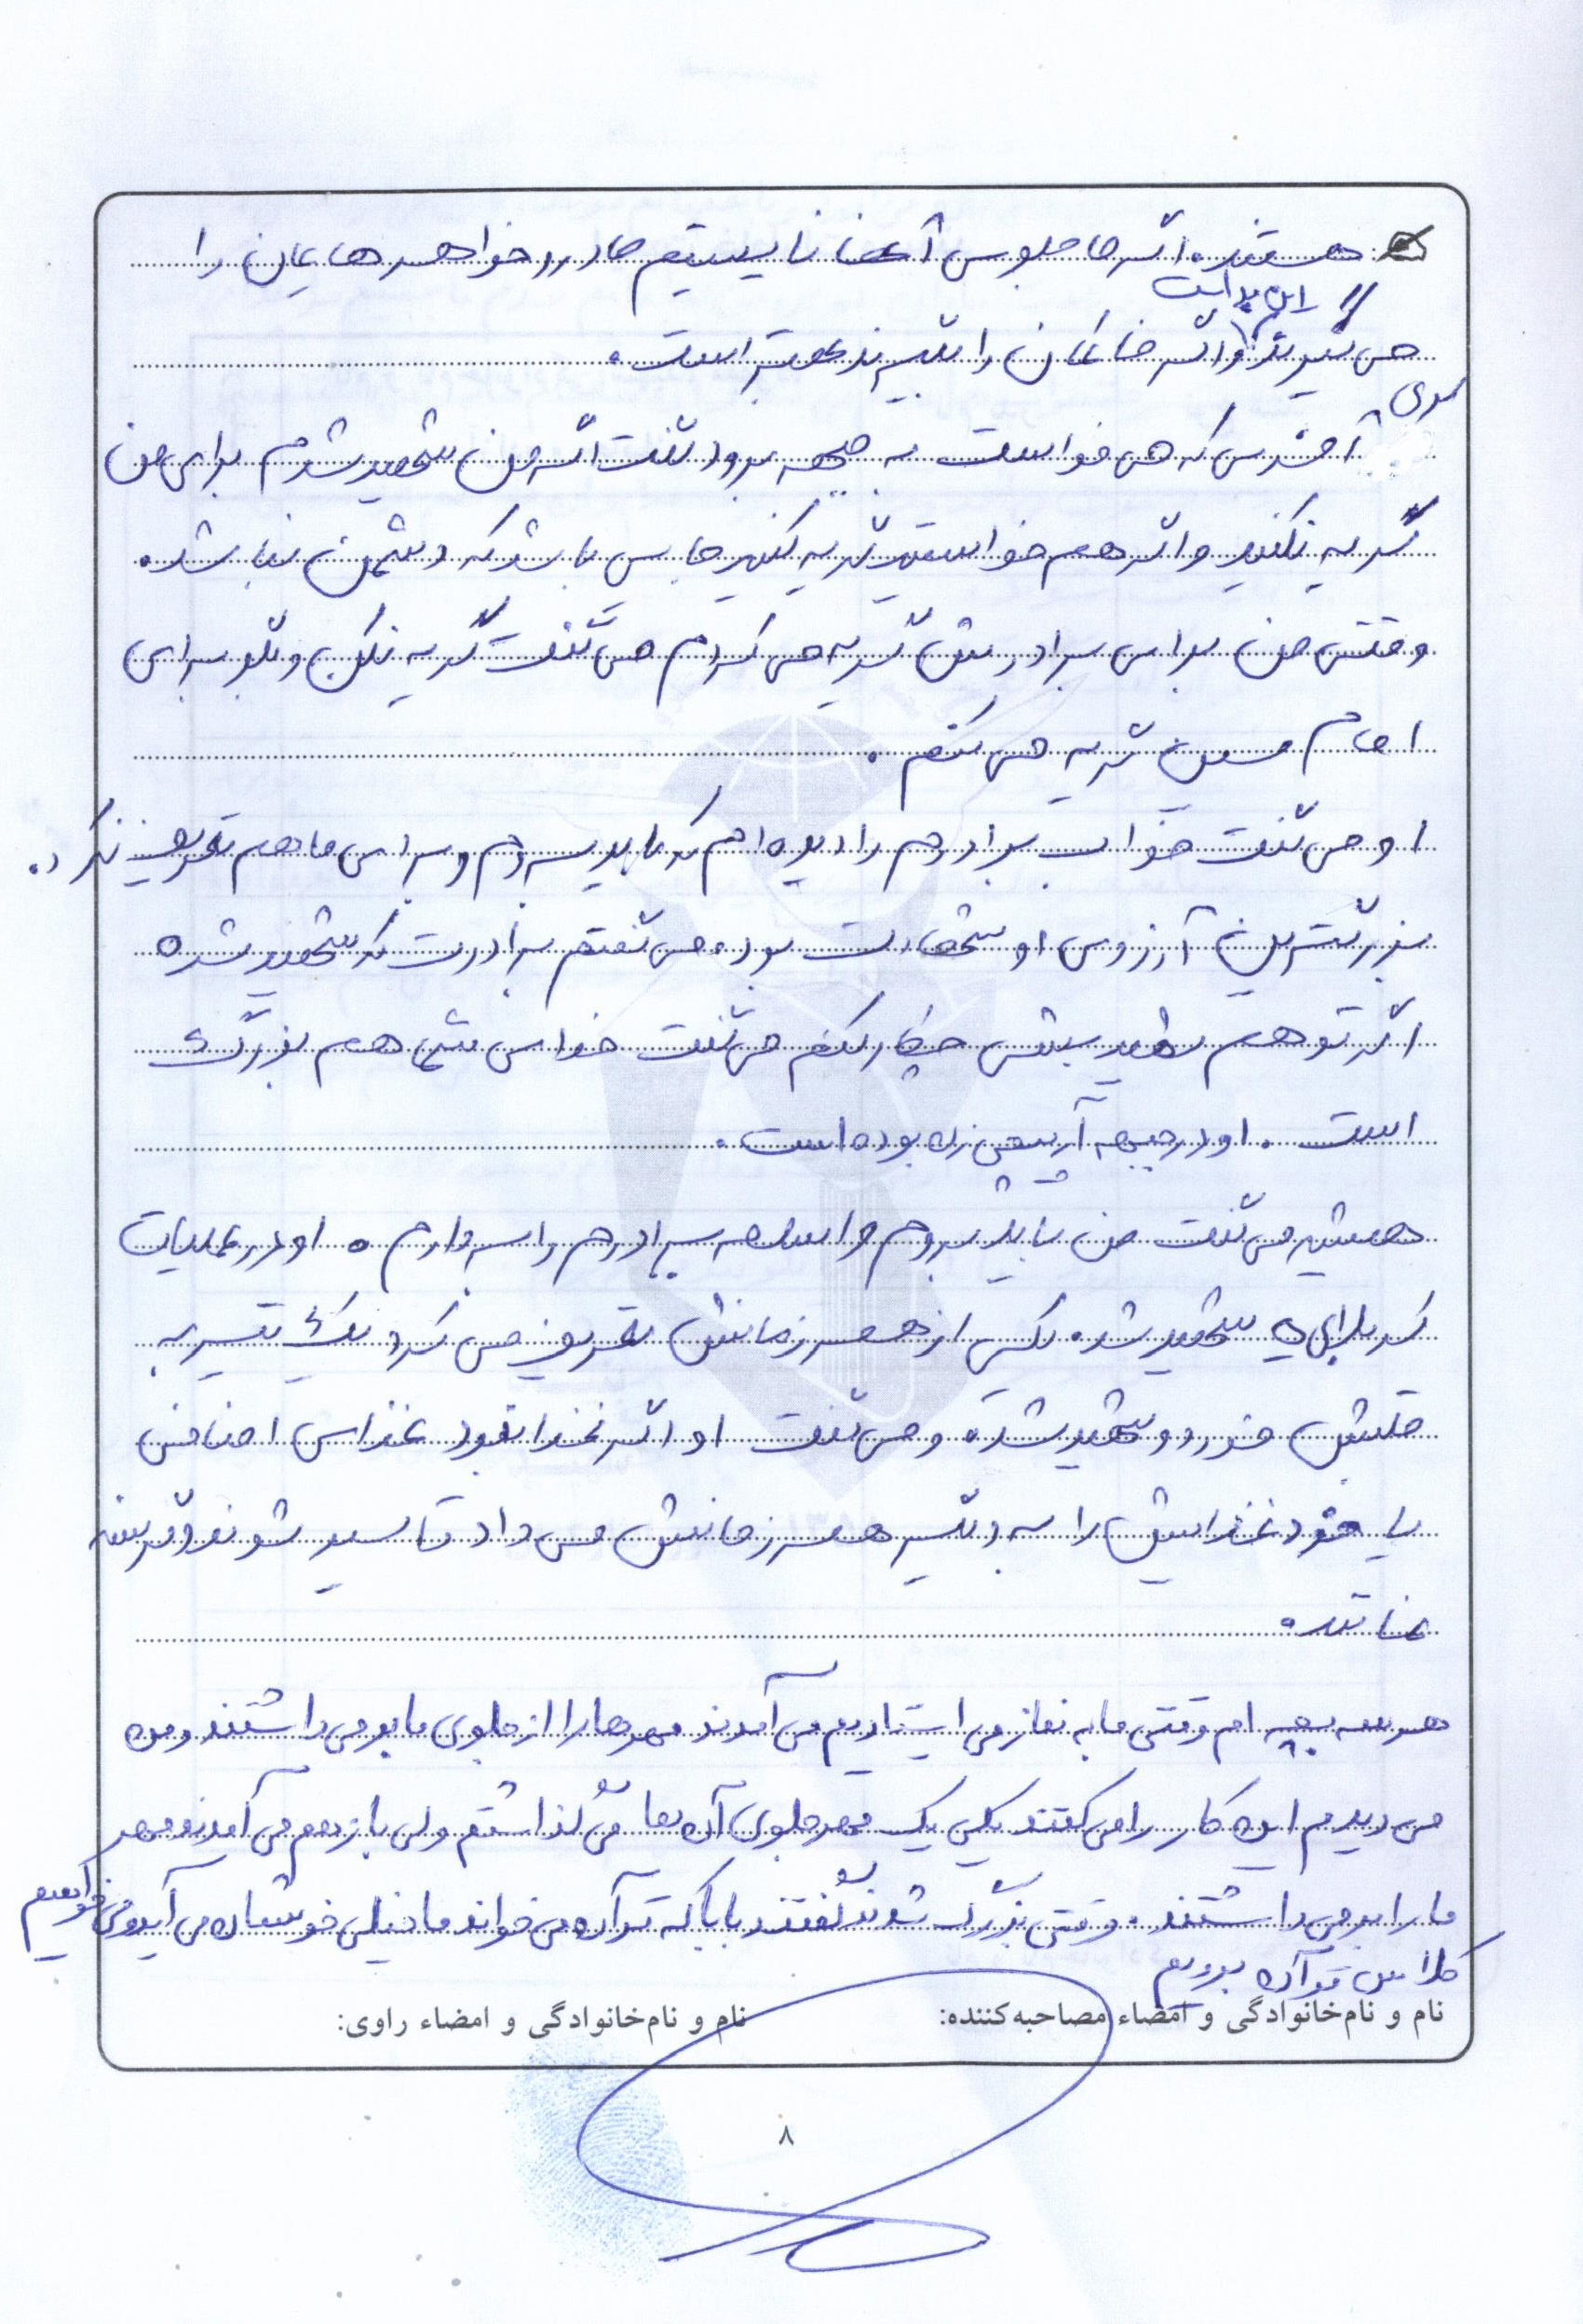 هستند. اگر ما جلوس آنها نایستیم مادر و خواهرهایمان را
می‌گیرند و اگر خانمان را بگیرند بهتر است.
این برایت
سری
آخری که می‌خواست به جبهه برود گفت اگر من شهید شدم برای من
گریه نکنید و اگر هم خواستید گریه کنید جایی باشد که دشمن نباشد.
وقتی من برای برادرش گریه می‌کردم می‌گفت گریه نکن و بگو برای
امام حسین گریه می‌کنم.
او می‌گفت خواب برادرم را دیده‌ام که باید بروم و برای ما هم تعریف نکرد.
بزرگترین آرزوی او شهادت بود. می‌گفتم برادرت که شهید شده
اگر تو هم شهید بشی چکار کنم می‌گفت خدای شما هم بزرگ
است. او در جبهه آرپیچی زن بوده است.
همیشه می‌گفت من باید بروم و اسلحه برادرم را بردارم. او در عملیات
کربلای ۵ شهید شد. یکی از همرزمانش تعریف می‌کرد یک تیر به
قلبش خورد و شهید شد. و می‌گفت او اگر غذا نبود غذای اضافی
یا خود غذایش را به دیگر همرزمانش می‌داد تا سیر شوند و گرسنه
نمانند.
هر سه بچه ام وقتی ما به نماز می ایستادیم می آمدند مهرها را از جلوی ما بر می داشتند و من
می دیدم این کار را می کنند یکی یک مهر جلوی آن ها می گذاشتم ولی باز هم می آمدند و مهر
ما را بر می داشتند. وقتی بزرگ شدند گفتند بابا که قرآن می خواند ما خیلی خوشمان می آید و می خواهیم
کلاس قرآن برویم
نام و نام‌خانوادگی و امضاء مصاحبه‌کننده: نام و نام‌خانوادگی و امضاء راوی:
۸